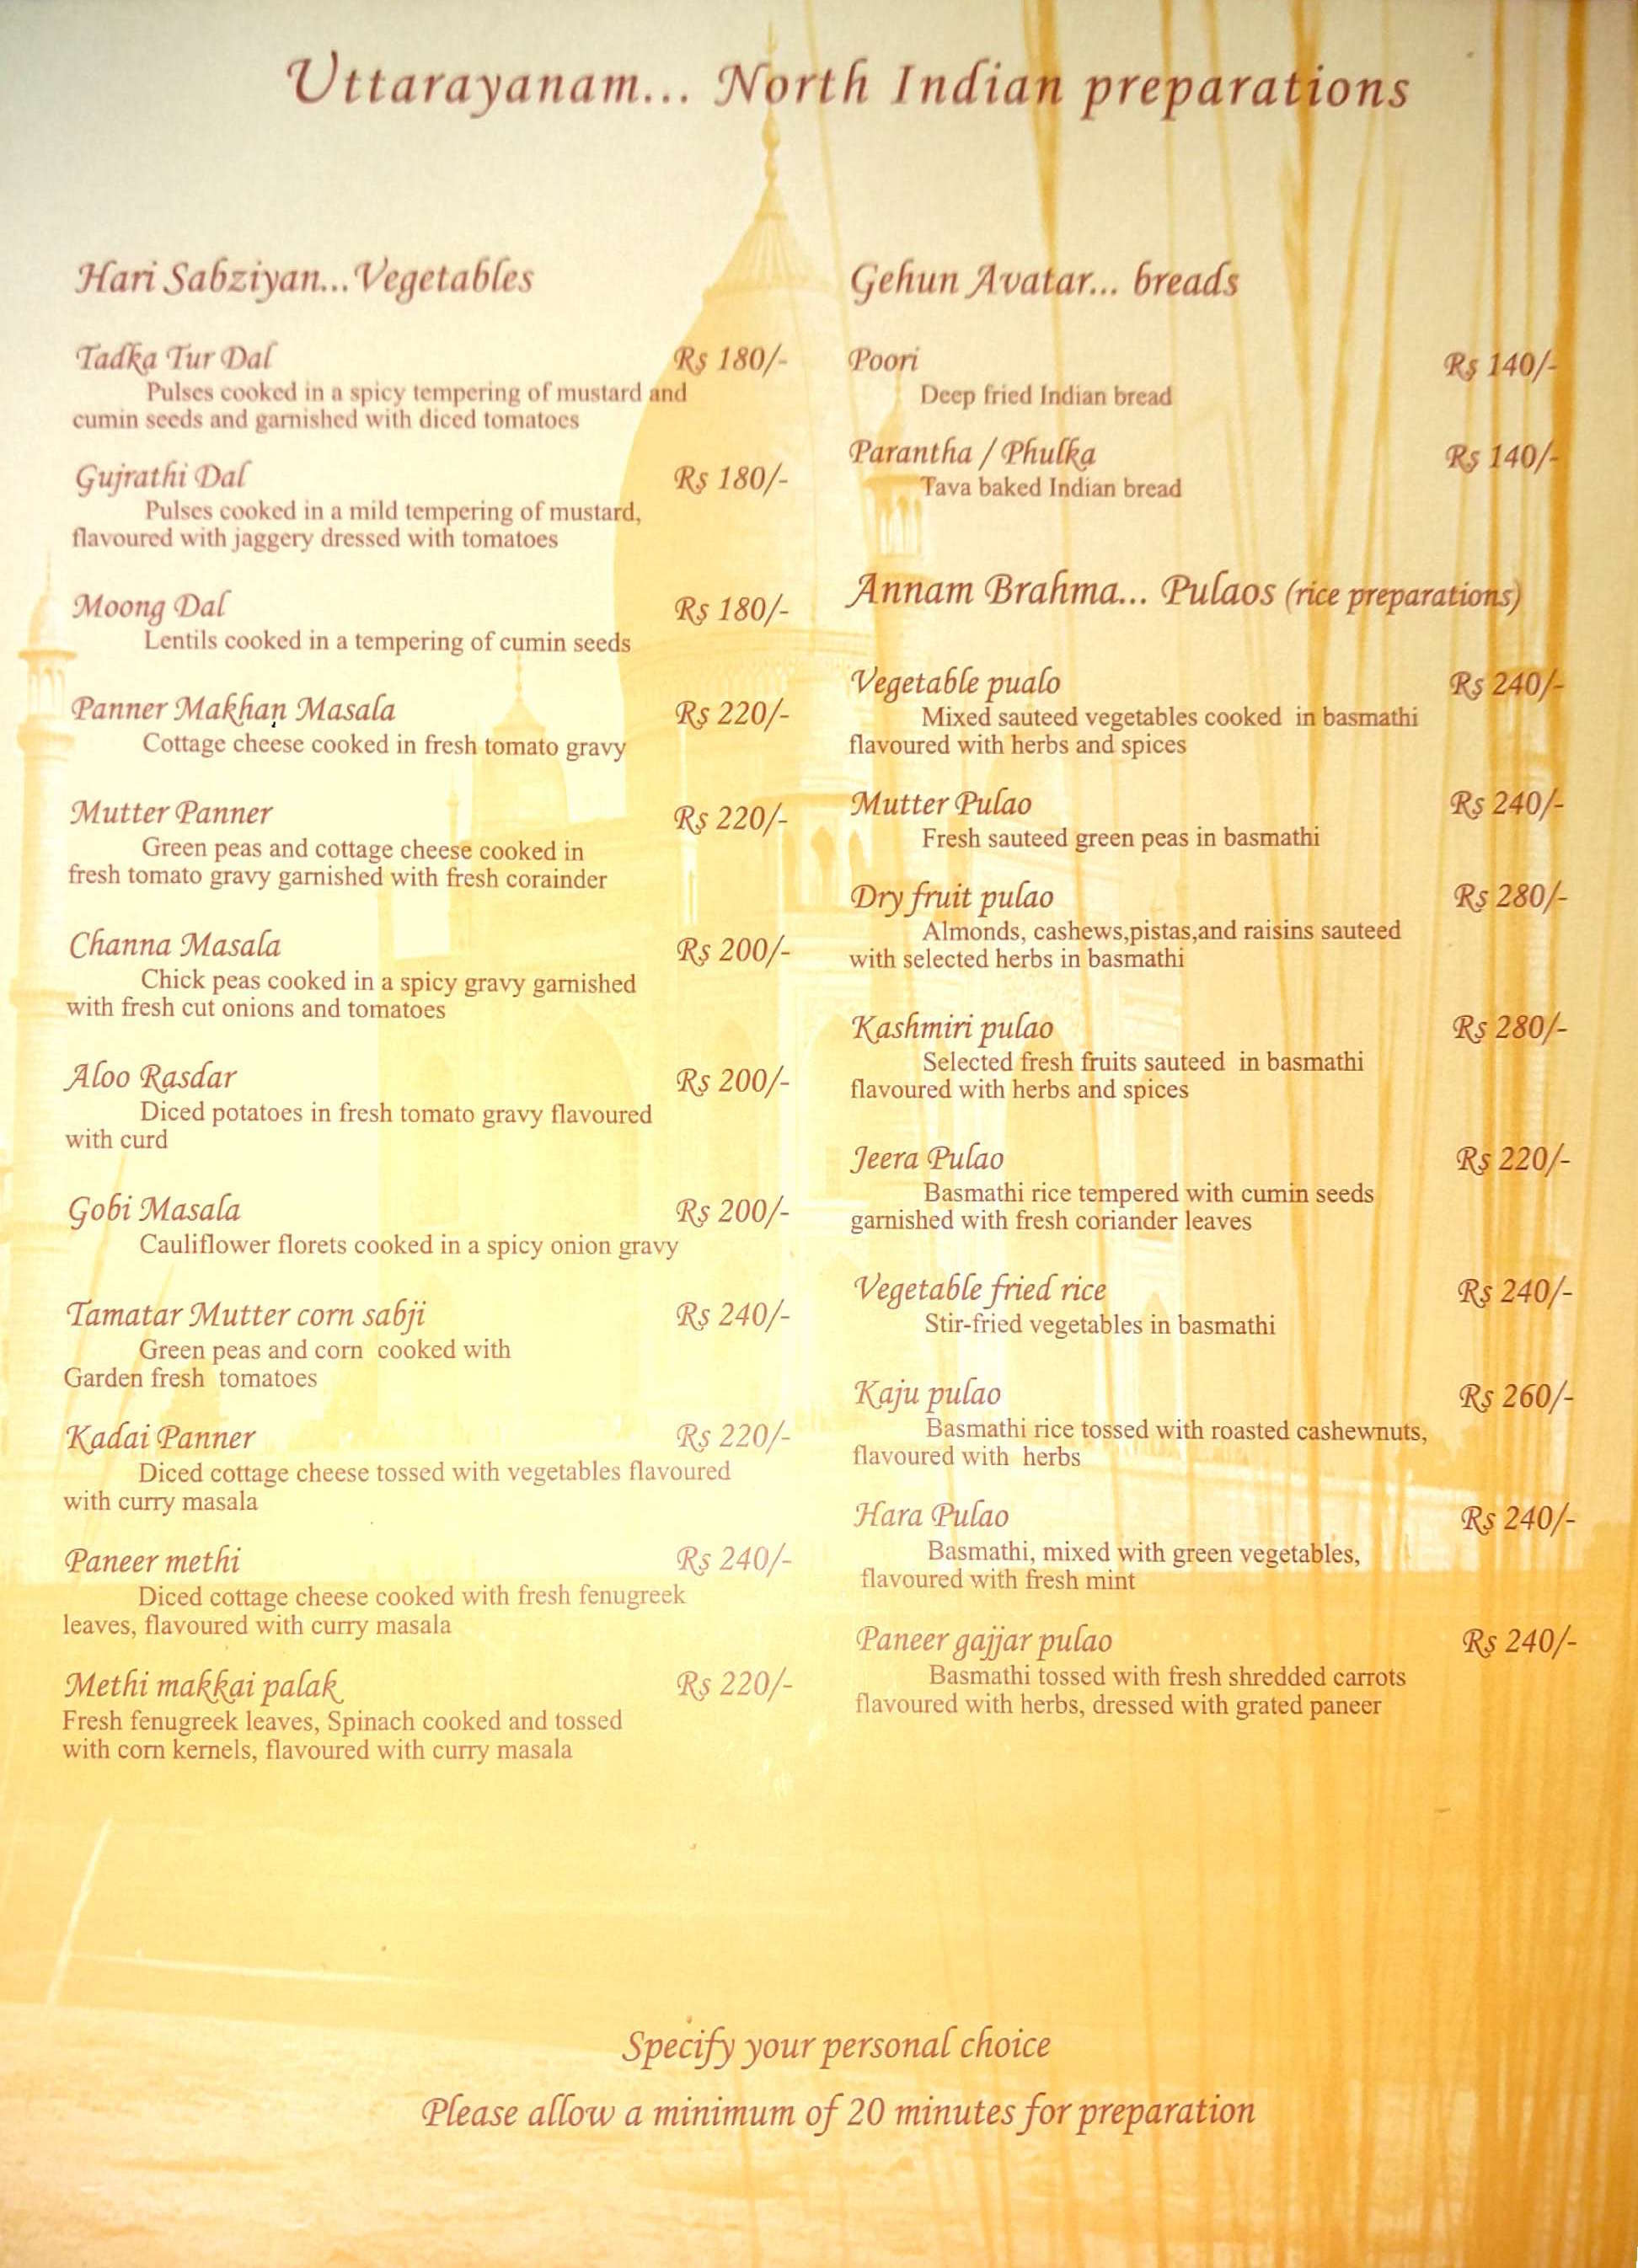 Uttarayanam... North Indian preparations
Hari Sabziyan...Vegetables
Tadka Tur Dal Rs 180/-
Pulses cooked in a spicy tempering of mustard and
cumin seeds and garnished with diced tomatoes
Gujrathi Dal Rs 180/-
Pulses cooked in a mild tempering of mustard,
flavoured with jaggery dressed with tomatoes
Moong Dal Rs 180/-
Lentils cooked in a tempering of cumin seeds
Panner Makhan Masala Rs 220/-
Cottage cheese cooked in fresh tomato gravy
Mutter Panner Rs 220/-
Green peas and cottage cheese cooked in
fresh tomato gravy garnished with fresh corainder
Channa Masala Rs 200/-
Chick peas cooked in a spicy gravy garnished
with fresh cut onions and tomatoes
Aloo Rasdar Rs 200/-
Diced potatoes in fresh tomato gravy flavoured
with curd
Gobi Masala Rs 200/-
Cauliflower florets cooked in a spicy onion gravy
Tamatar Mutter corn sabji Rs 240/-
Green peas and corn cooked with
Garden fresh tomatoes
Kadai Panner Rs 220/-
Diced cottage cheese tossed with vegetables flavoured
with curry masala
Paneer methi Rs 240/-
Diced cottage cheese cooked with fresh fenugreek
leaves, flavoured with curry masala
Methi makkai palak Rs 220/-
Fresh fenugreek leaves, Spinach cooked and tossed
with corn kernels, flavoured with curry masala
Gehun Avatar... breads
Poori Rs 140/-
Deep fried Indian bread
Parantha / Phulka Rs 140/-
Tava baked Indian bread
Annam Brahma... Pulaos (rice preparations)
Vegetable pualo Rs 240/-
Mixed sauteed vegetables cooked in basmathi
flavoured with herbs and spices
Mutter Pulao Rs 240/-
Fresh sauteed green peas in basmathi
Dry fruit pulao Rs 280/-
Almonds, cashews,pistas,and raisins sauteed
with selected herbs in basmathi
Kashmiri pulao Rs 280/-
Selected fresh fruits sauteed in basmathi
flavoured with herbs and spices
Jeera Pulao Rs 220/-
Basmathi rice tempered with cumin seeds
garnished with fresh coriander leaves
Vegetable fried rice Rs 240/-
Stir-fried vegetables in basmathi
Kaju pulao Rs 260/-
Basmathi rice tossed with roasted cashewnuts,
flavoured with herbs
Hara Pulao Rs 240/-
Basmathi, mixed with green vegetables,
flavoured with fresh mint
Paneer gajjar pulao Rs 240/-
Basmathi tossed with fresh shredded carrots
flavoured with herbs, dressed with grated paneer
Specify your personal choice
Please allow a minimum of 20 minutes for preparation